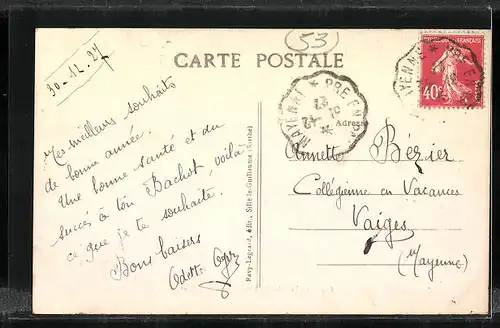 (53)
CARTE POSTALE
30-12-27
Mes meilleurs souhaits
de bonne année.
Une bonne santé et du
succès à ton Bachot, voilà
ce que je te souhaite.
Bons baisers
Odette
Favy-Legrand, édit., Sillé-le-Guillaume (Sarthe)
MAYENNE * PRE EN P
31
-12
27
Adresse
AYENNE * PRE EN
FRANÇAISE
40c
Annette Bézier
Collégienne en Vacances
Vaiges
(Mayenne)